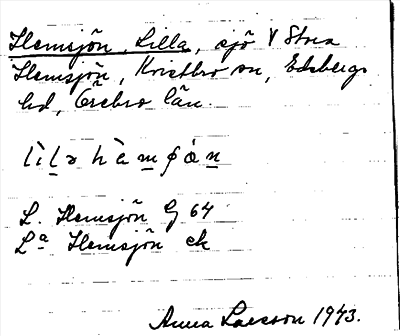 Hemsjön, Lilla, sjö V Stora
Hemsjön, Kvistbro sn, Edsbergs
hd, Örebro län.
L. Hemsjön G 64
La Hemsjön ek
Anna Larsson 1943.